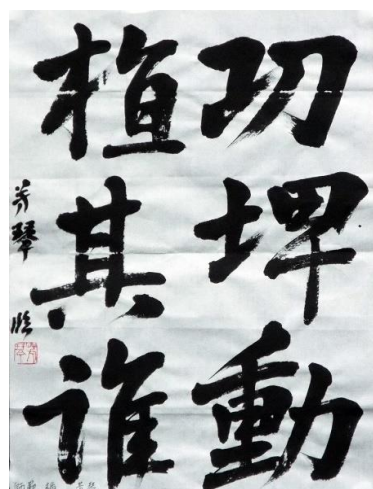 功埤動
植其誰
芳琴臨